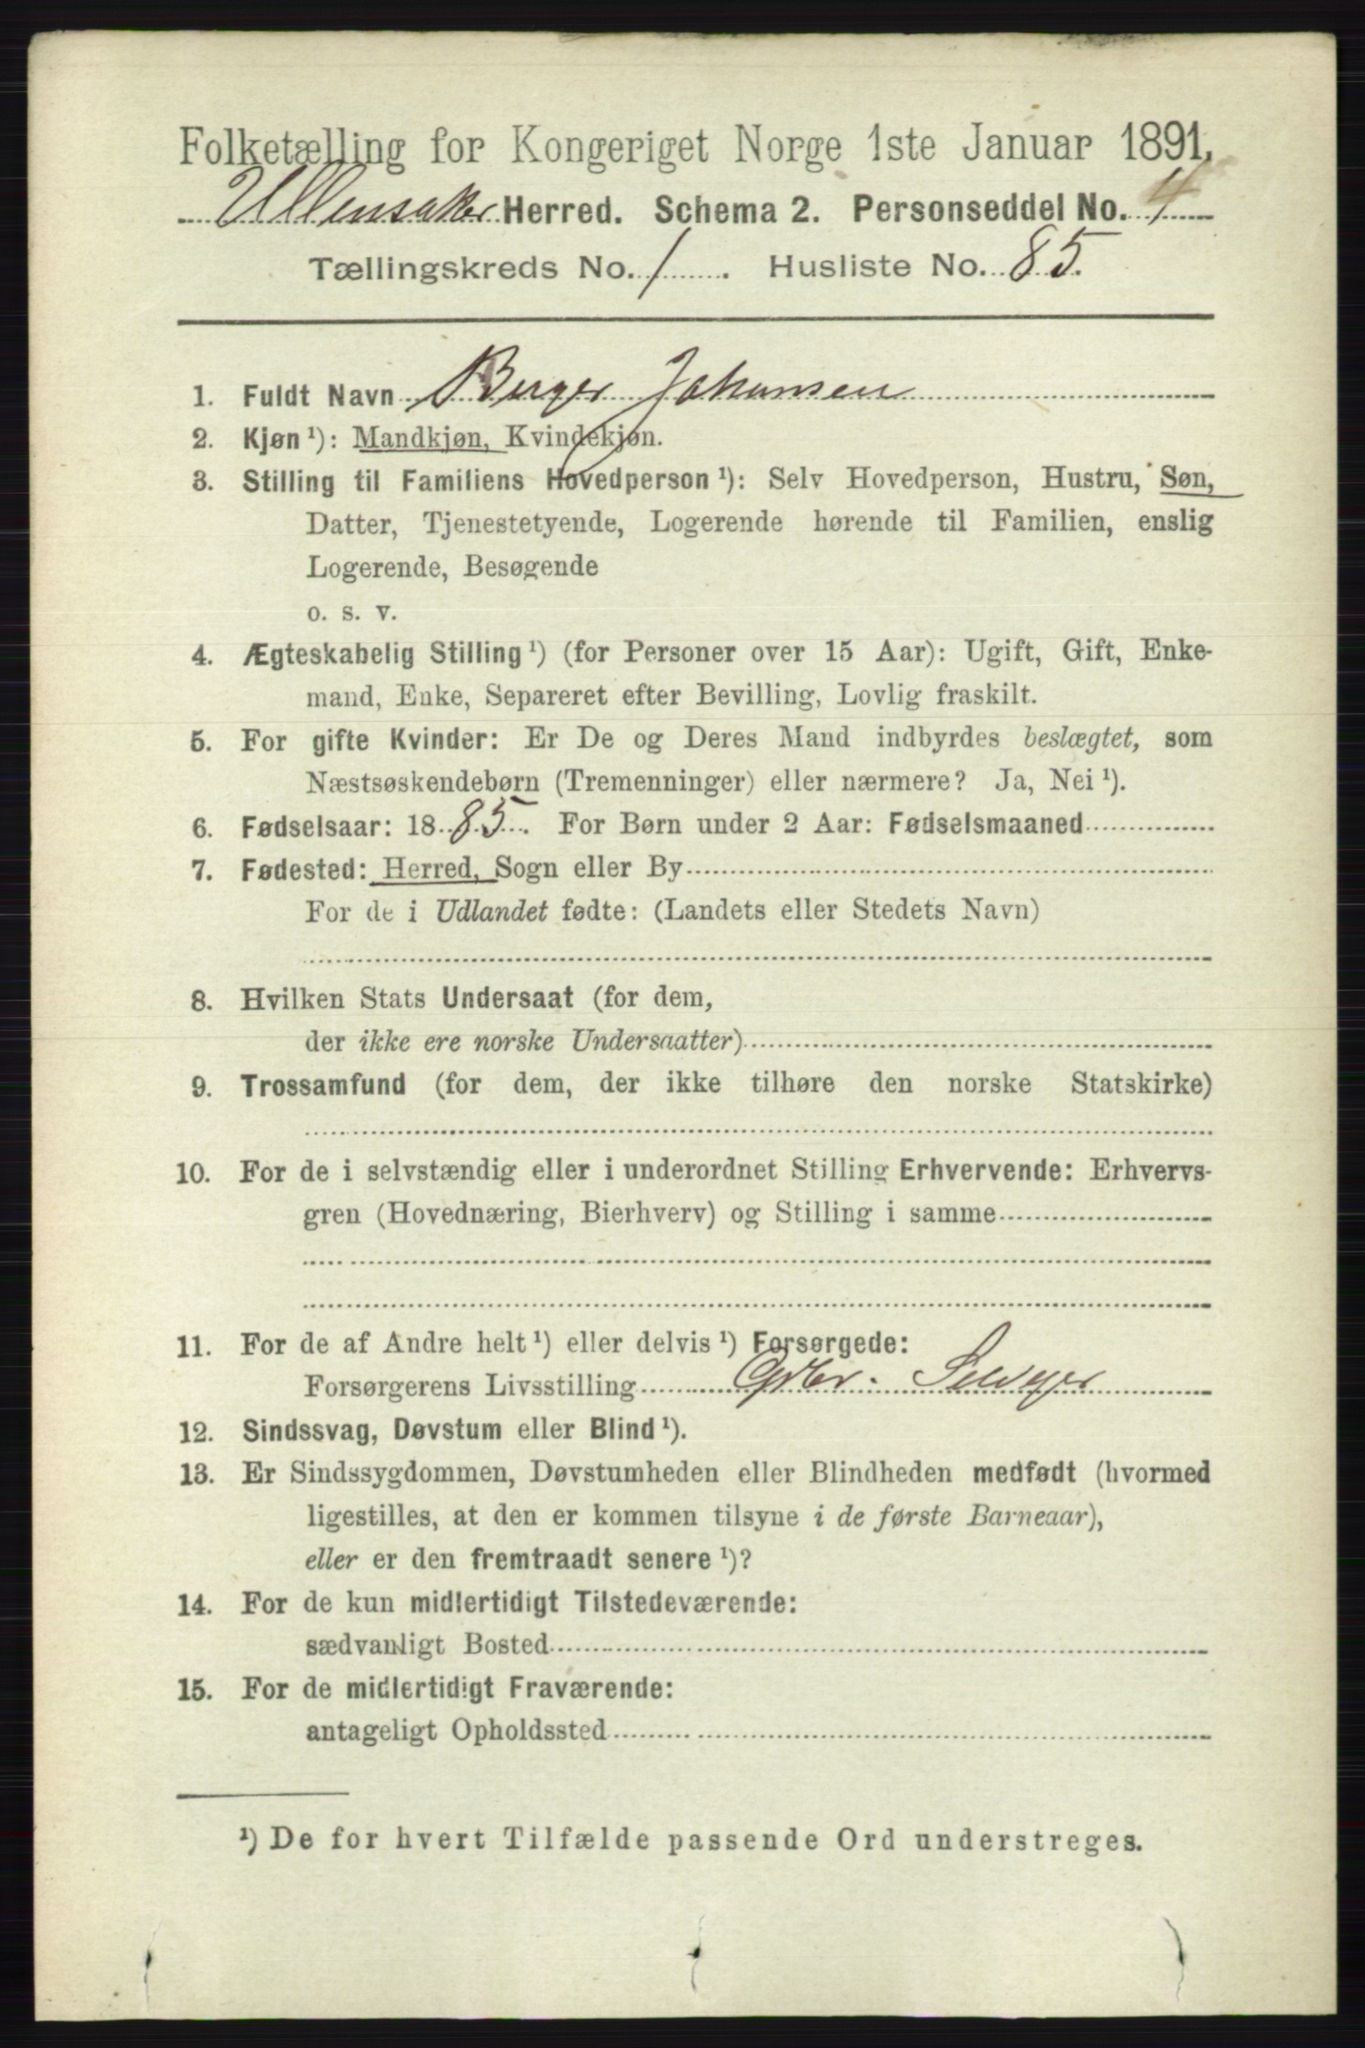 Folketælling for Kongeriget Norge 1ste Januar 1891.
Ullensaker Herred. Schema 2. Personseddel No. 4
Tællingskreds No. 1. Husliste No. 85.
1. Fuldt Navn Berger Johansen
2. Kjøn ¹): Mandkjøn, Kvindekjøn.
3. Stilling til Familiens Hovedperson ¹): Selv Hovedperson, Hustru, Søn,
Datter, Tjenestetyende, Logerende hørende til Familien, enslig
Logerende, Besøgende
o. s. v.
4. Ægteskabelig Stilling ¹) (for Personer over 15 Aar): Ugift, Gift, Enke-
mand, Enke, Separeret efter Bevilling, Lovlig fraskilt.
5. For gifte Kvinder: Er De og Deres Mand indbyrdes beslægtet, som
Næstsøskendebørn (Tremenninger) eller nærmere? Ja, Nei ¹).
6. Fødselsaar: 1885. For Børn under 2 Aar: Fødselsmaaned
7. Fødested: Herred, Sogn eller By
For de i Udlandet fødte: (Landets eller Stedets Navn)
8. Hvilken Stats Undersaat (for dem,
der ikke ere norske Undersaatter)
9. Trossamfund (for dem, der ikke tilhøre den norske Statskirke)
10. For de i selvstændig eller i underordnet Stilling Erhvervende: Erhvervs-
gren (Hovednæring, Bierhverv) og Stilling i samme
11. For de af Andre helt ¹) eller delvis ¹) Forsørgede:
Forsørgerens Livsstilling Gbr. Selvejer
12. Sindssvag, Døvstum eller Blind ¹).
13. Er Sindssygdommen, Døvstumheden eller Blindheden medfødt (hvormed
ligestilles, at den er kommen tilsyne i de første Barneaar),
eller er den fremtraadt senere ¹)?
14. For de kun midlertidigt Tilstedeværende:
sædvanligt Bosted
15. For de midlertidigt Fraværende:
antageligt Opholdssted
¹) De for hvert Tilfælde passende Ord understreges.